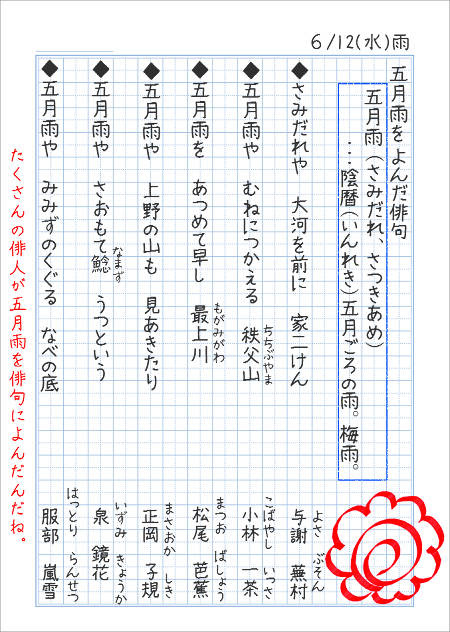 6/12(水)雨
五月雨をよんだ俳句
五月雨(さみだれ、さつきあめ)
…陰暦(いんれき)五月ごろの雨。梅雨。
◆さみだれや 大河を前に 家二けん 与謝 蕪村
よさ ぶそん
◆五月雨や むねにつかえる 秩父山 小林 一茶
ちちぶやま こばやし いっさ
◆五月雨を あつめて早し 最上川 松尾 芭蕉
もがみがわ まつお ばしょう
◆五月雨や 上野の山も 見あきたり 正岡 子規
まさおか しき
◆五月雨や さおもて鯰 うつという 泉 鏡花
なまず いずみ きょうか
◆五月雨や みみずのくぐる なべの底 服部 嵐雪
はっとり らんせつ
たくさんの俳人が五月雨を俳句によんだんだね。